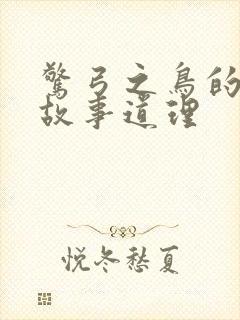 驚弓之鳥的
故事道理
悦冬愁夏